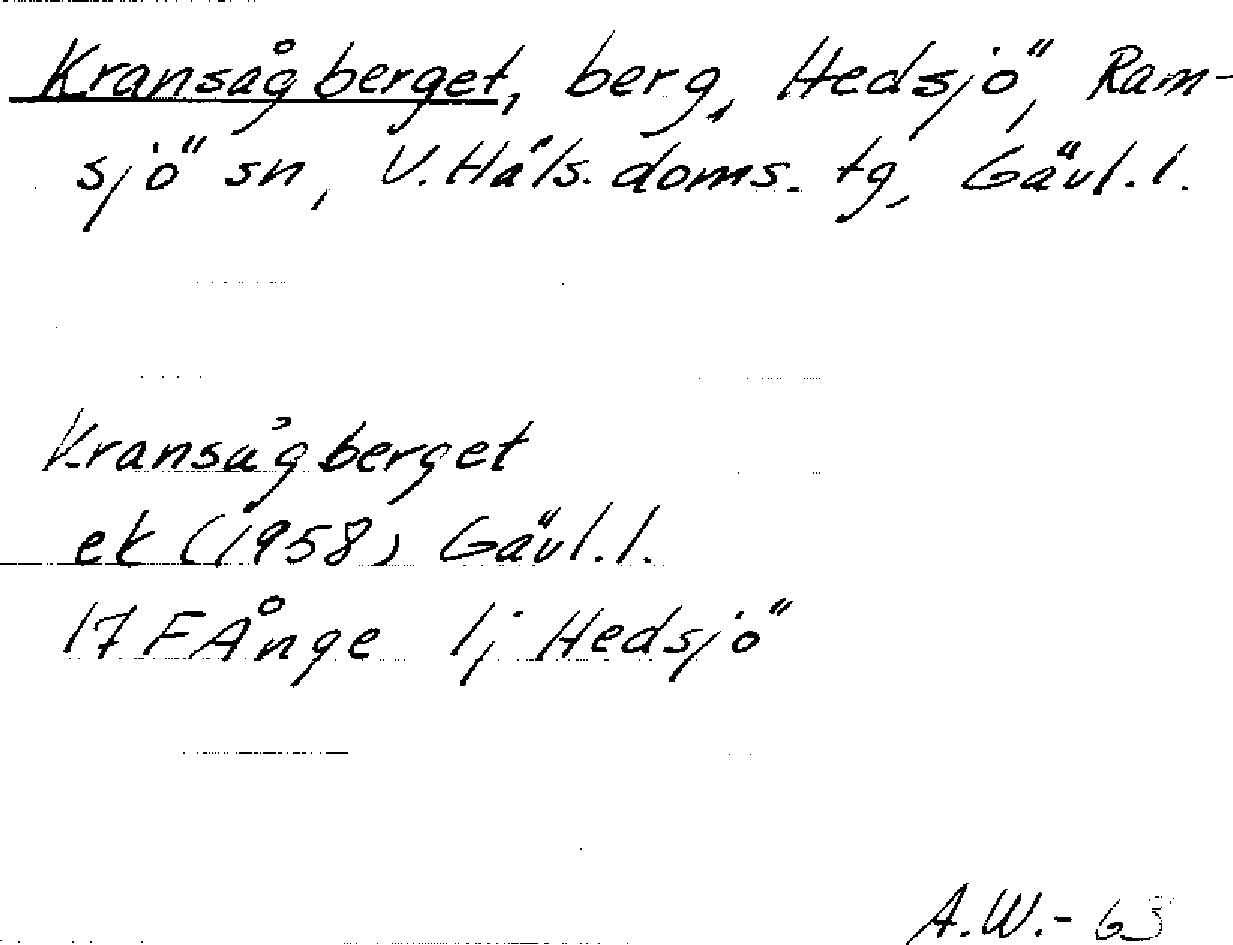 Kransågberget, berg, Hedsjö, Ram-
sjö sn, V. Häls. doms. tg, Gävl. l.
Kransågberget
ek (1958) Gävl. l.
17 F Ånge 1j Hedsjö
A.W.- 63